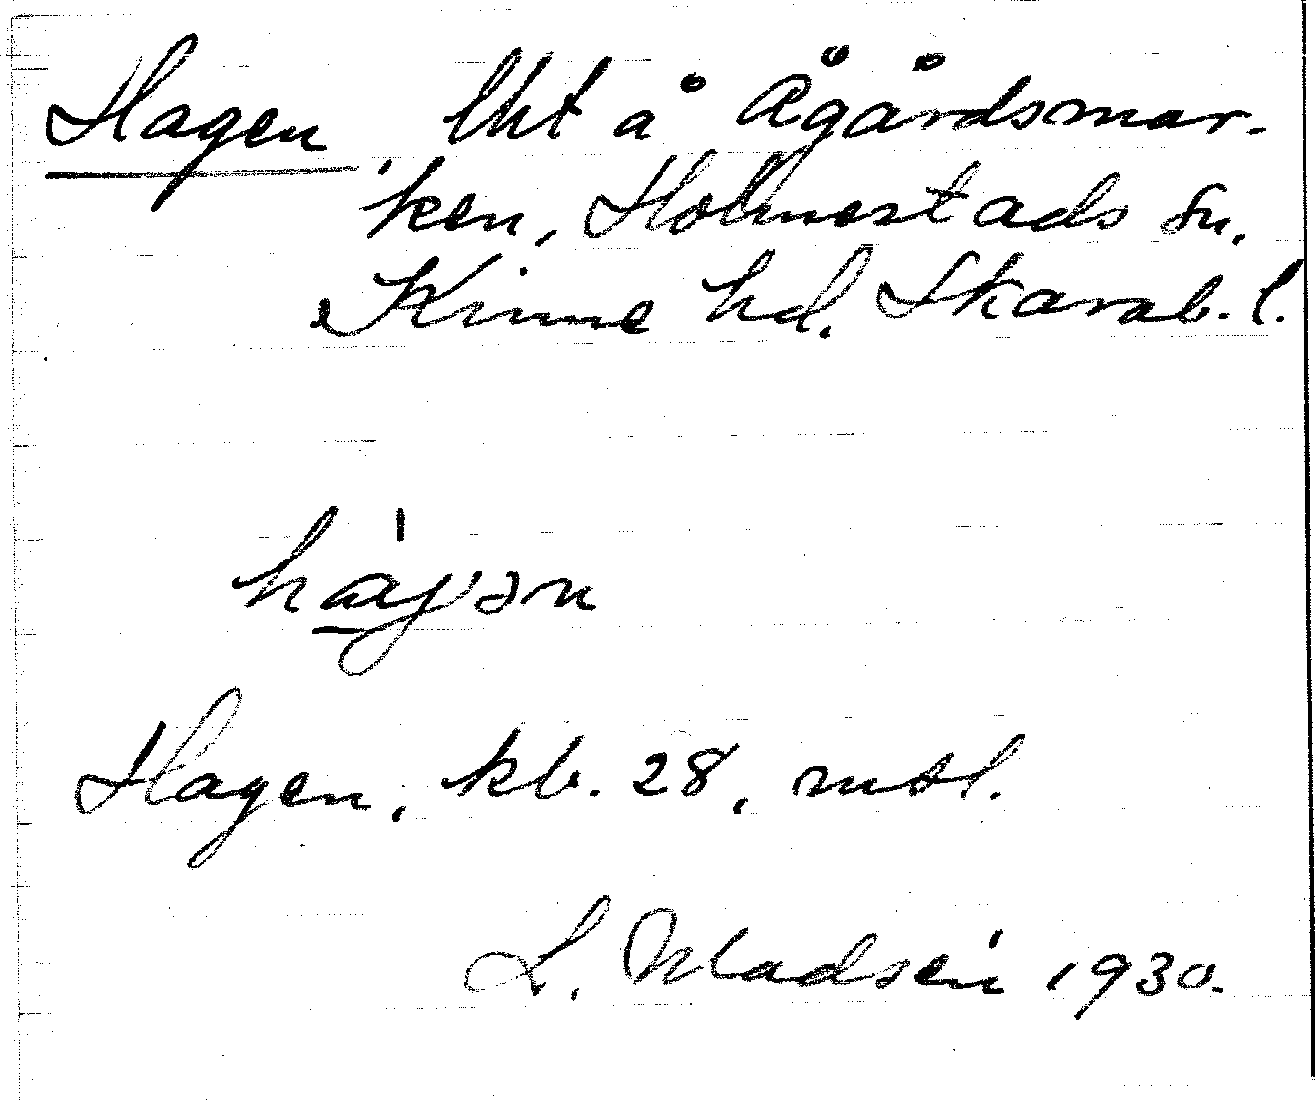 Hagen lht å Ågårdsmar-
ken, Holmestads sn.
Kinne hd. Skarab. l.
ha̲ɣ'ən
Hagen, kb. 28, mtl.
L. Madsén 1930.